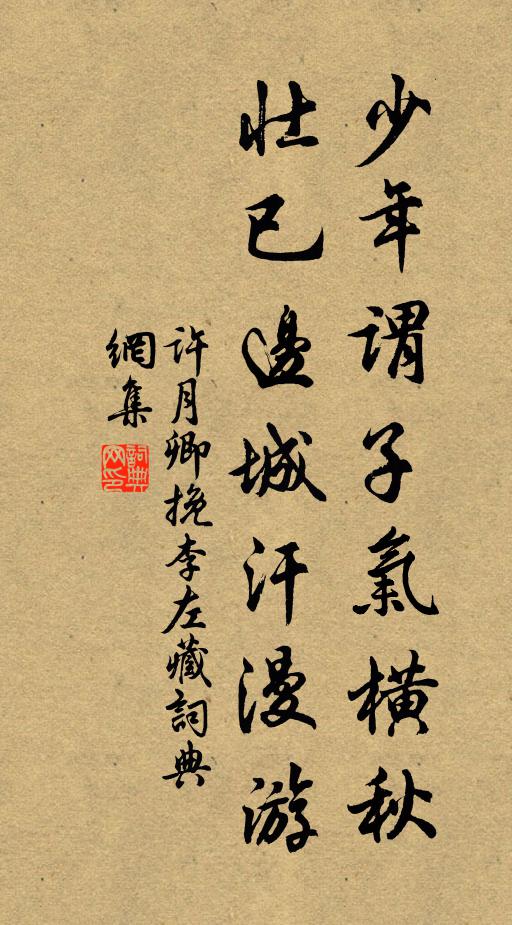 少年謂子氣橫秋
壯已邊城汗漫游
許月卿挽李左藏詞典
網集
詞典網印